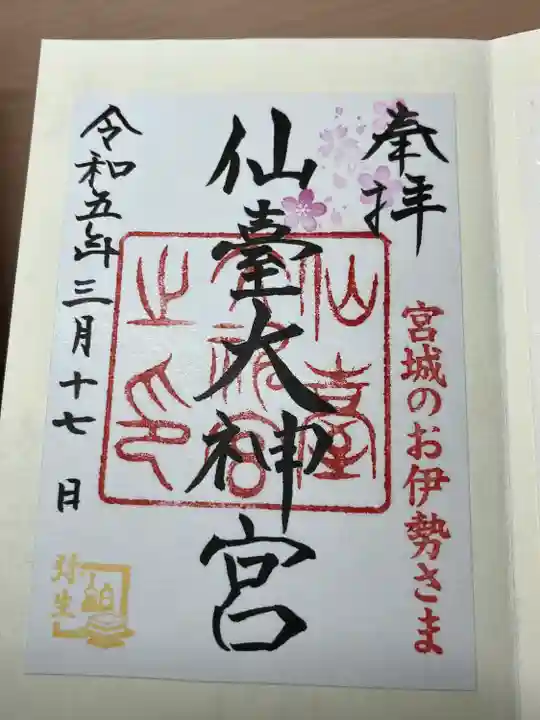 奉拝
宮城のお伊勢さま
仙臺大神宮
仙臺
大神宮
之印
令和五年三月十七日
弥生